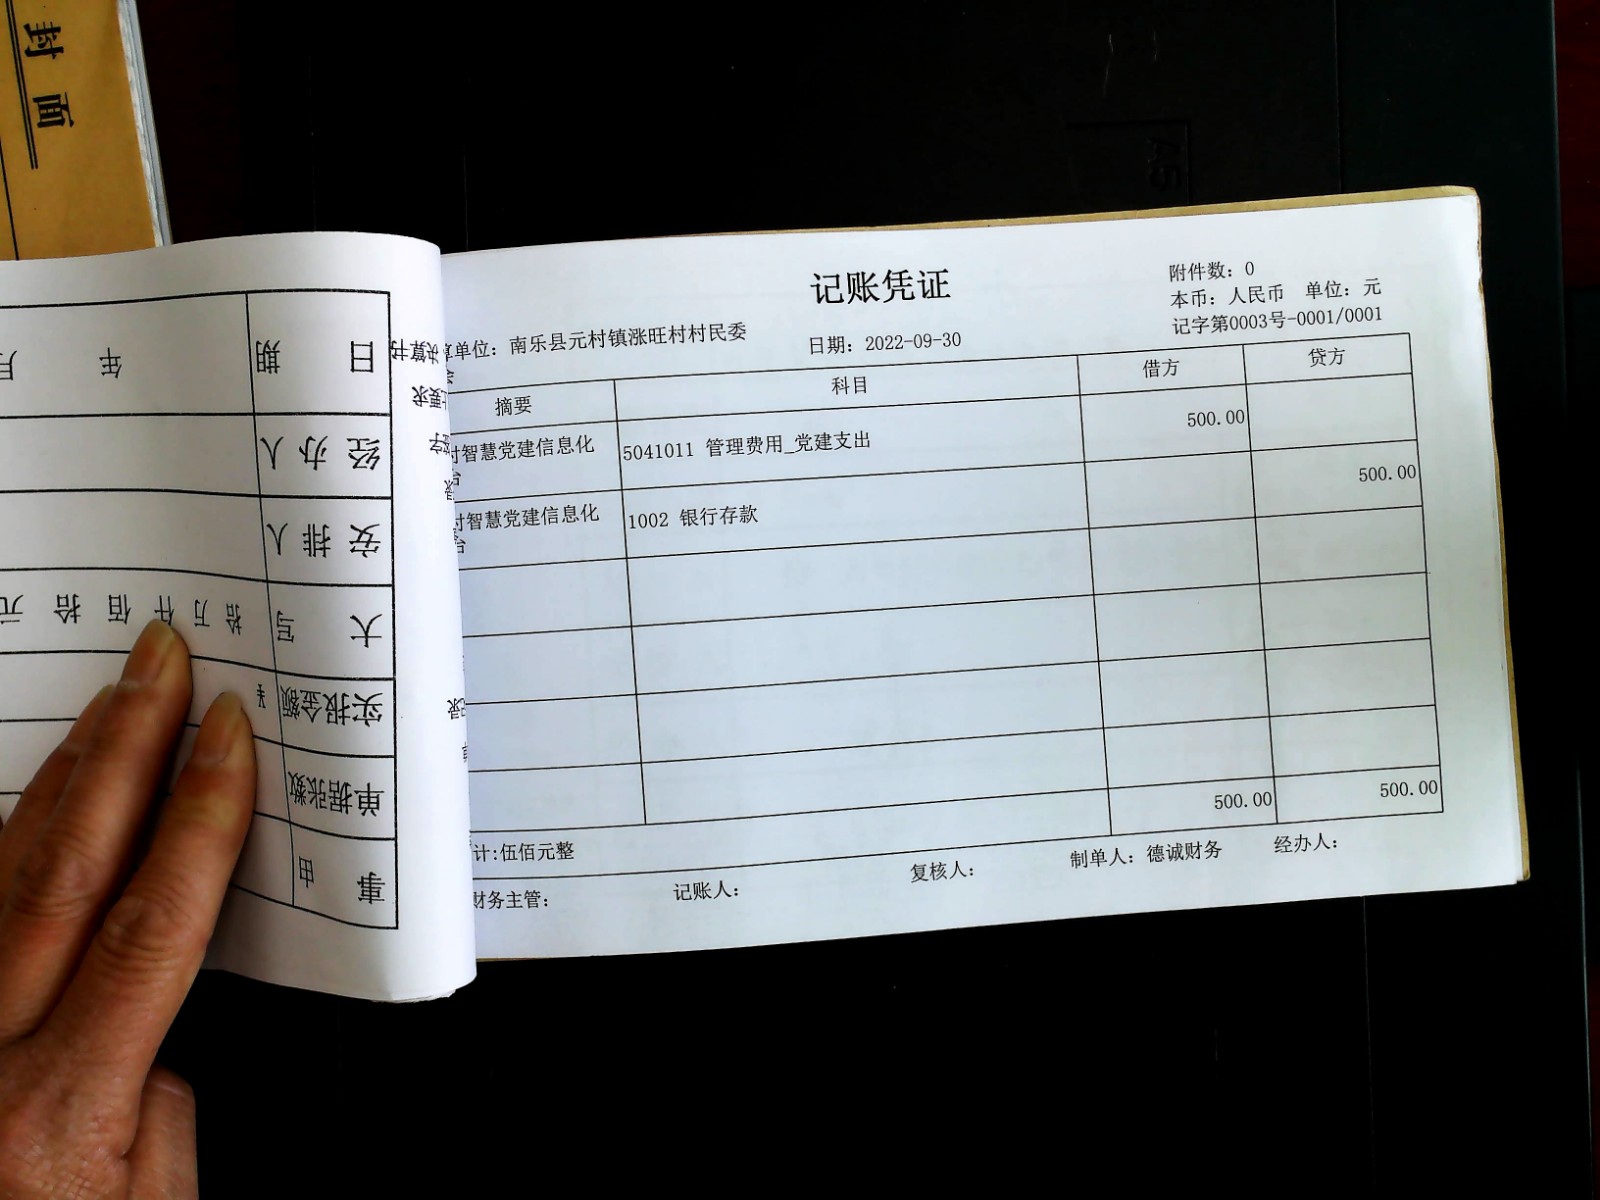 封面
A5
记账凭证
附件数：0
本币：人民币 单位：元
记字第0003号-0001/0001
算单位：南乐县元村镇涨旺村村民委
日期：2022-09-30
摘要 科目 借方 贷方
付智慧党建信息化 5041011 管理费用_党建支出 500.00
付智慧党建信息化 1002 银行存款 500.00
500.00 500.00
计:伍佰元整
财务主管： 记账人： 复核人： 制单人：德诚财务 经办人：
事由
单据张数
实报金额 ¥
大写 拾万仟佰拾元
安排人
经办人
日期 年 月